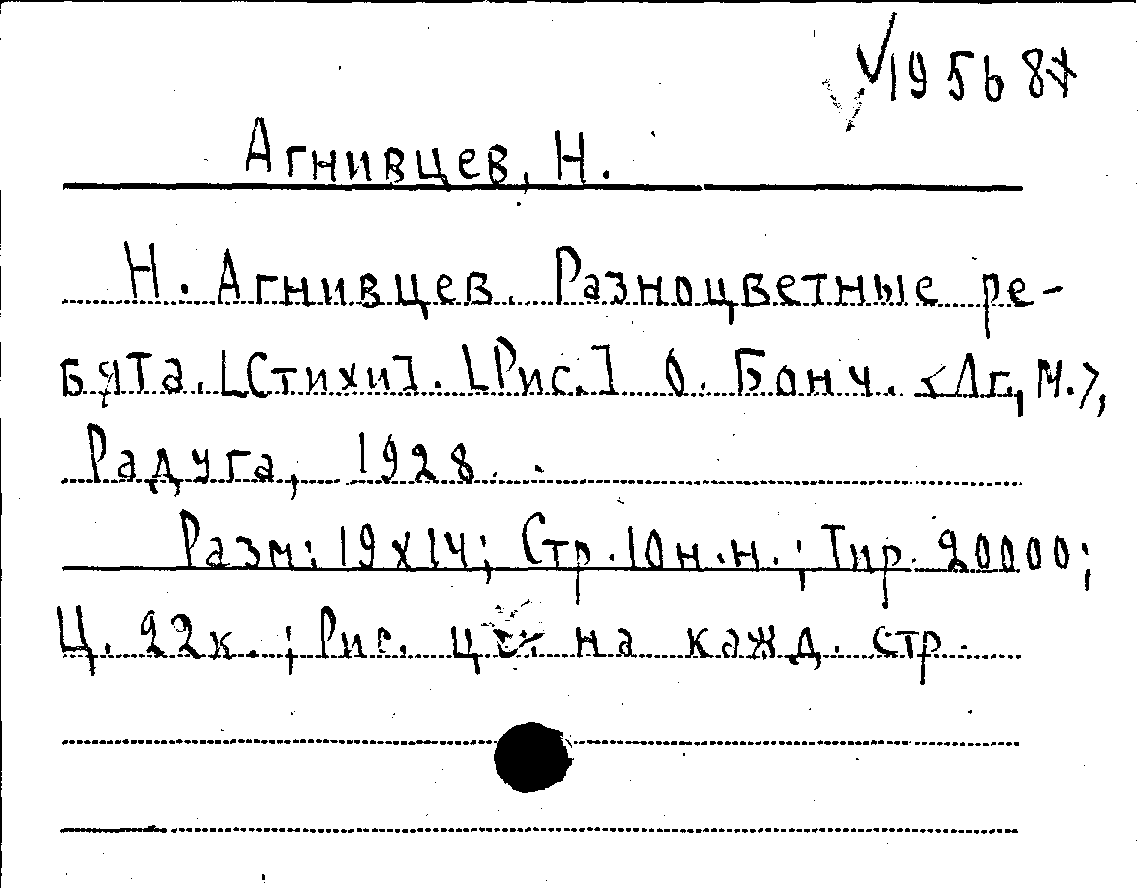 Агнивцев, Н.
Н. Агнивцев. Разноцветные ре-
бята. [Стихи]. [Рис.] О. Бонч. <Лг, М.>,
Радуга, 1928.
Разм: 19х14; Стр. 10 н.н.; Тир. 20000;
Ц. 22к.; Рис. цв. на кажд. стр.